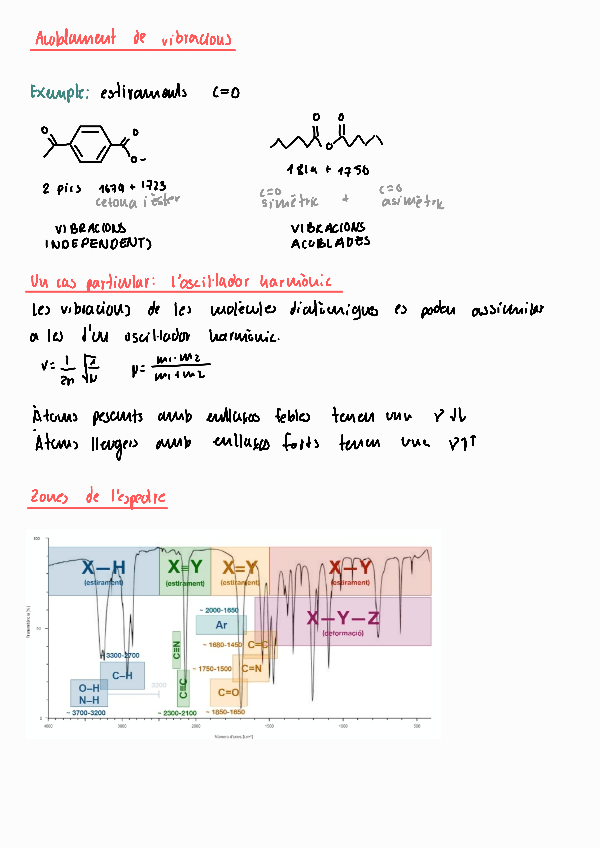 Acoblament de vibracions
Exemple: estiraments C=O
O
O
O
O O
O
1814 + 1750
2 pics 1679 + 1723
cetona i èster
C=O C=O
simètric + asimètric
VIBRACIONS
INDEPENDENTS
VIBRACIONS
ACOBLADES
Un cas particular: l'oscil·lador harmònic
Les vibracions de les molècules diatòmiques es poden assimilar
a les d'un oscil·lador harmònic.
m1·m2
m1+m2
Àtoms pesants amb enllaços febles tenen una ν ↓↓
Àtoms lleugers amb enllaços forts tenen una ν ↑↑
Zones de l'espectre
X—H X≡Y X=Y X—Y
(estirament) (estirament) (estirament) (estirament)
X—Y—Z
(deformació)
~ 2000-1650
Ar
~ 1680-1450 C=C
3300-2700
C–H
C≡N
~ 1750-1500 C=N
O–H
N–H
3200
C≡C
C=O
~ 3700-3200
~ 2300-2100
~ 1850-1650
Transmitància (%)
100
50
0
4000 3000 2000 1500 1000 500
Número d'ones (cm-1)